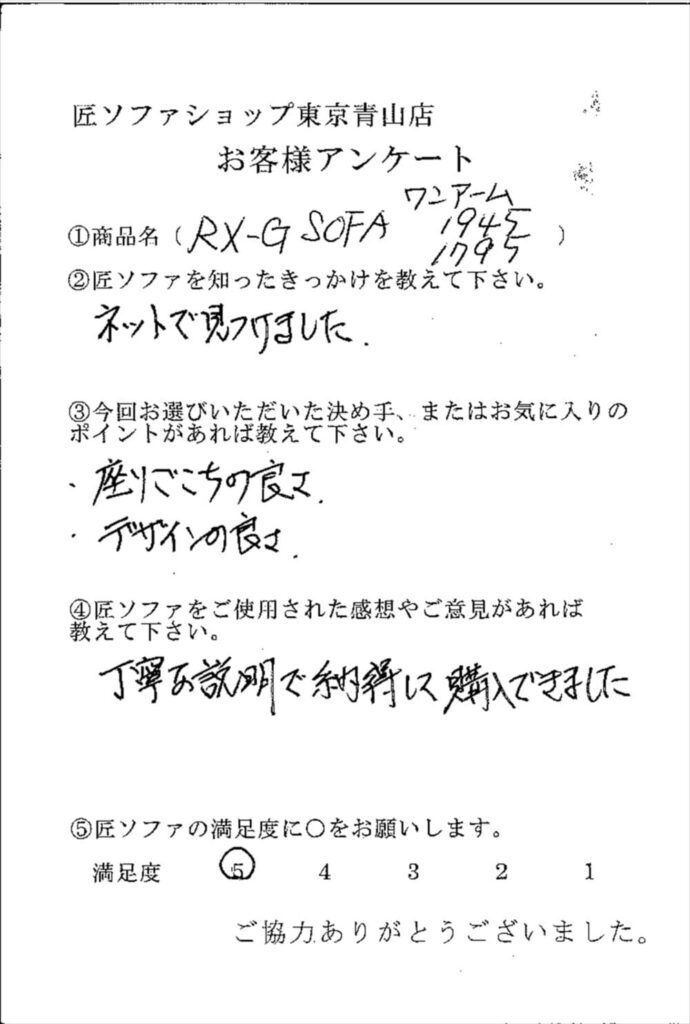 匠ソファショップ東京青山店
お客様アンケート
ワンアーム
①商品名（RX-G SOFA 1945）
1795
②匠ソファを知ったきっかけを教えて下さい。
ネットで見つけました.
③今回お選びいただいた決め手、またはお気に入りの
ポイントがあれば教えて下さい。
・座りごこちの良さ.
・デザインの良さ.
④匠ソファをご使用された感想やご意見があれば
教えて下さい。
丁寧な説明で納得して購入できました
⑤匠ソファの満足度に〇をお願いします。
満足度 5 4 3 2 1
ご協力ありがとうございました。